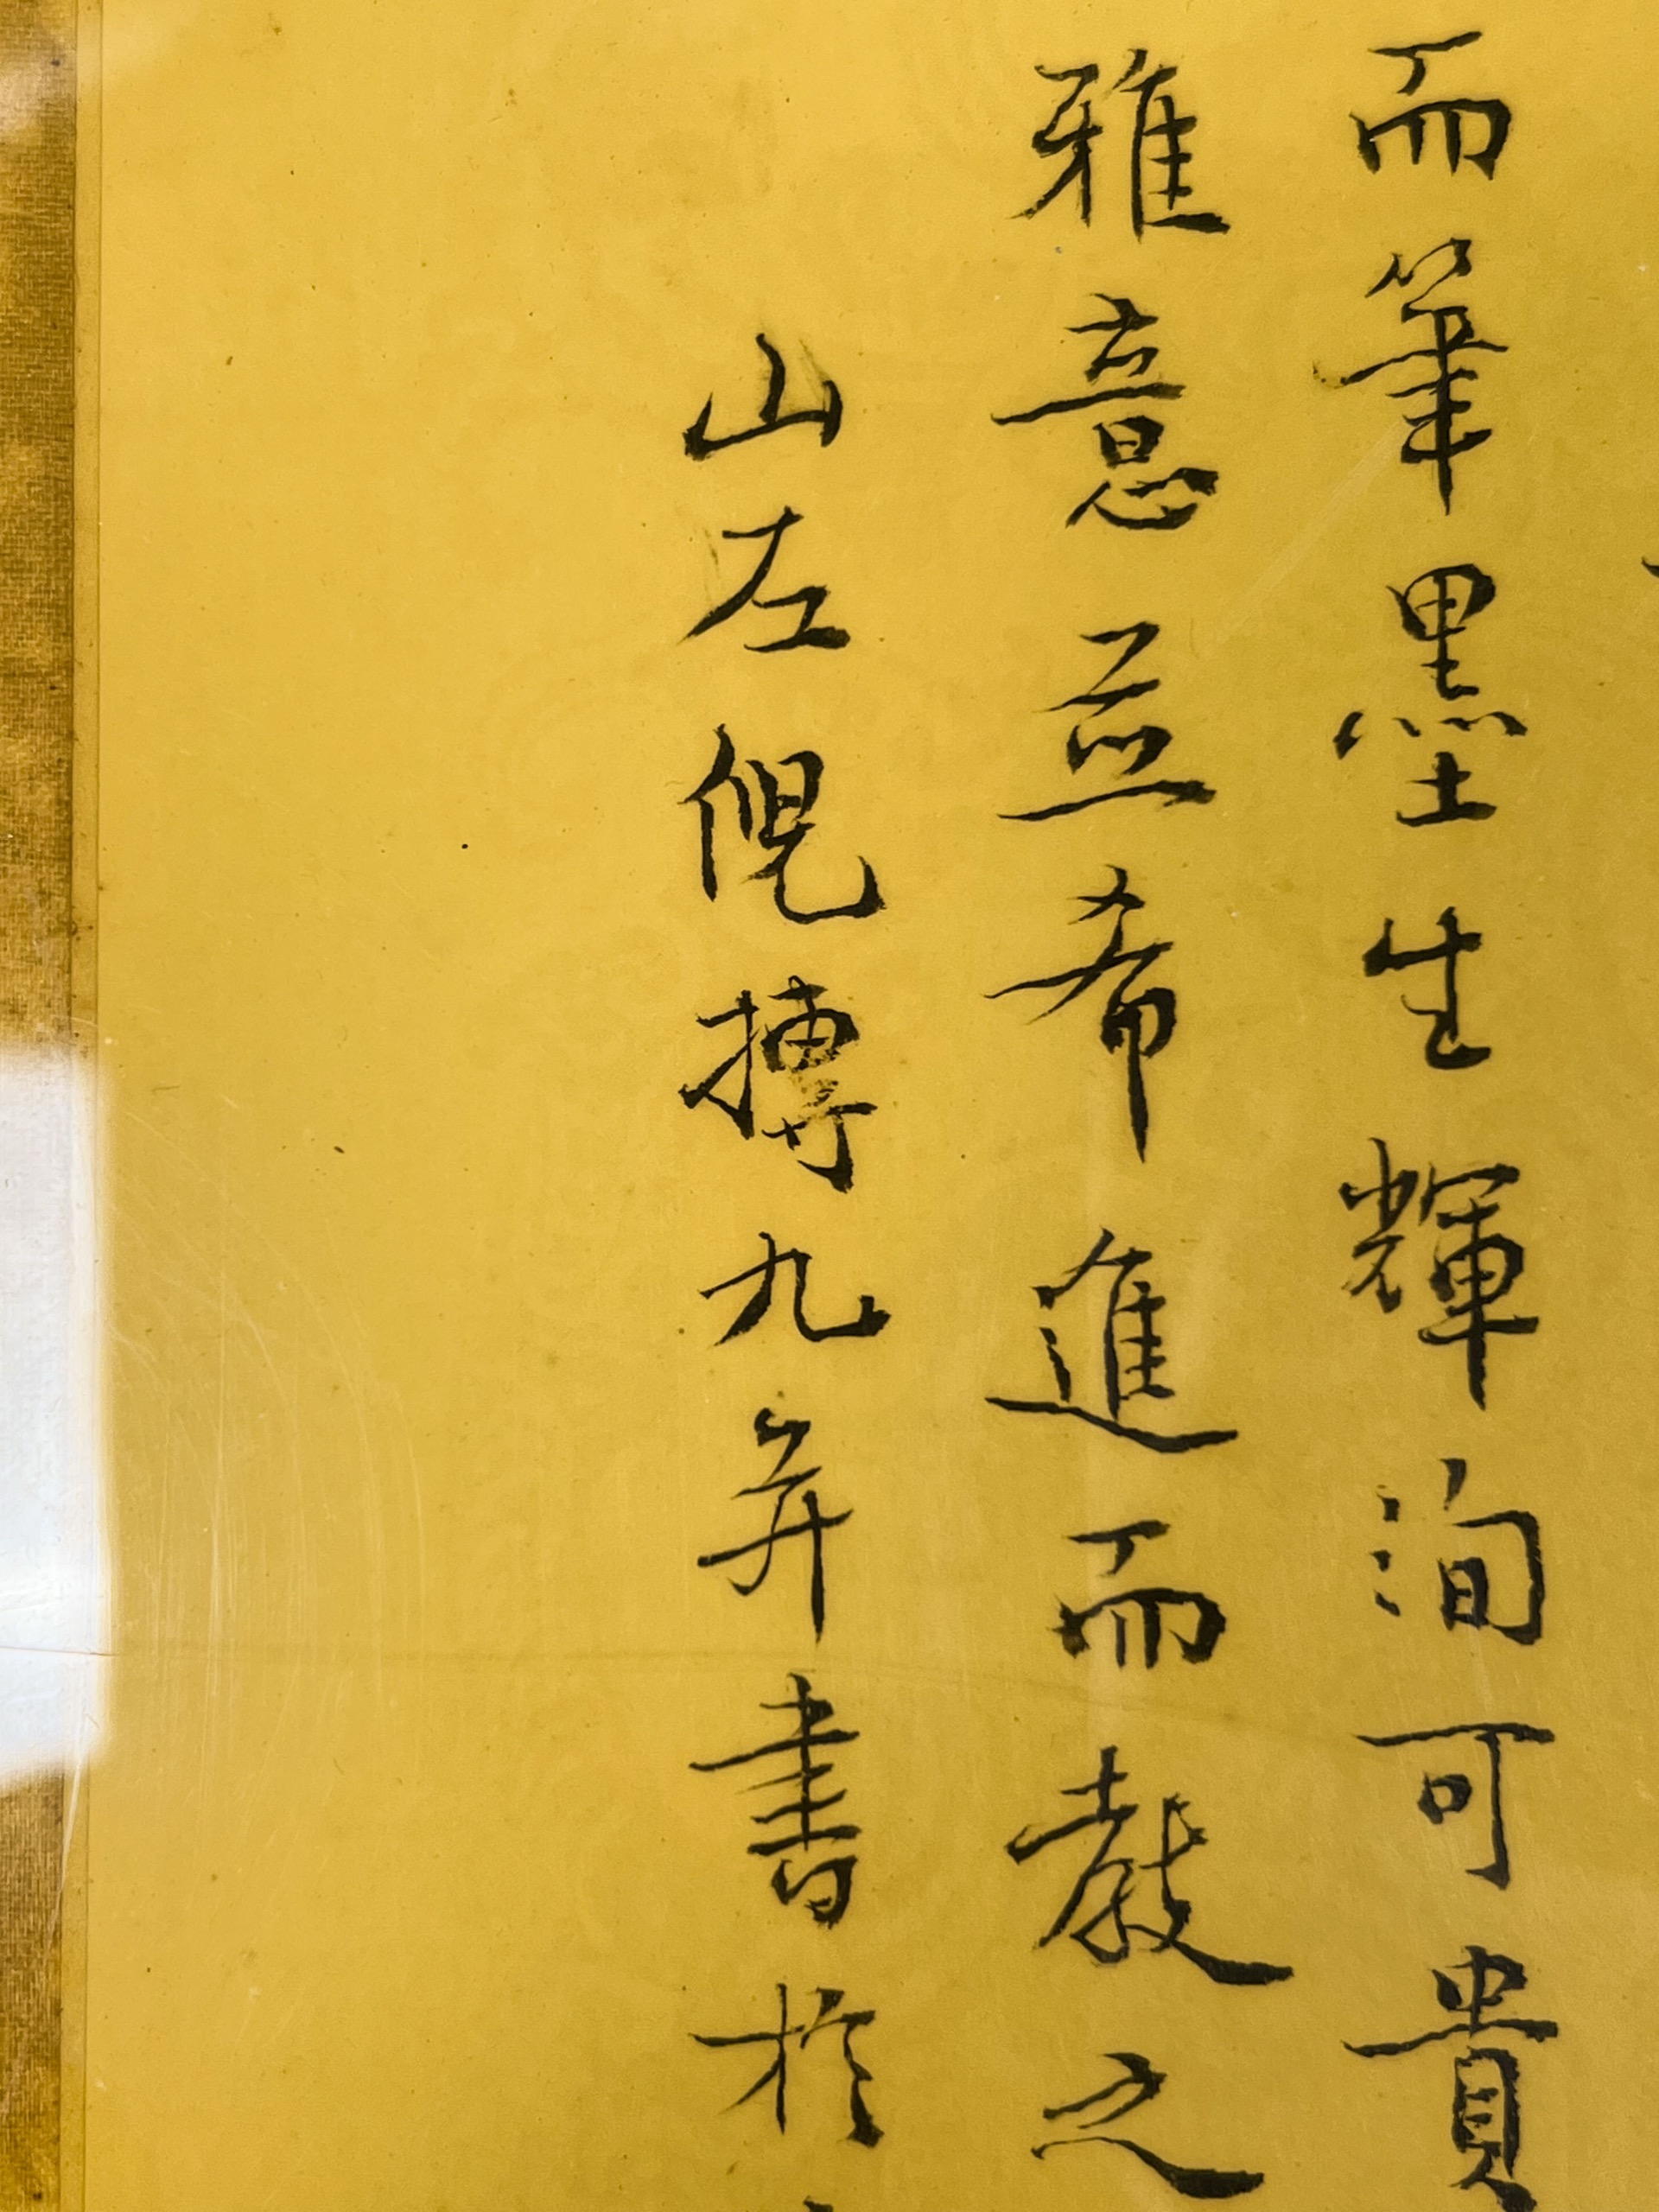 而筆墨生輝洵可貴
雅意並希進而教之
山左倪搏九并書於